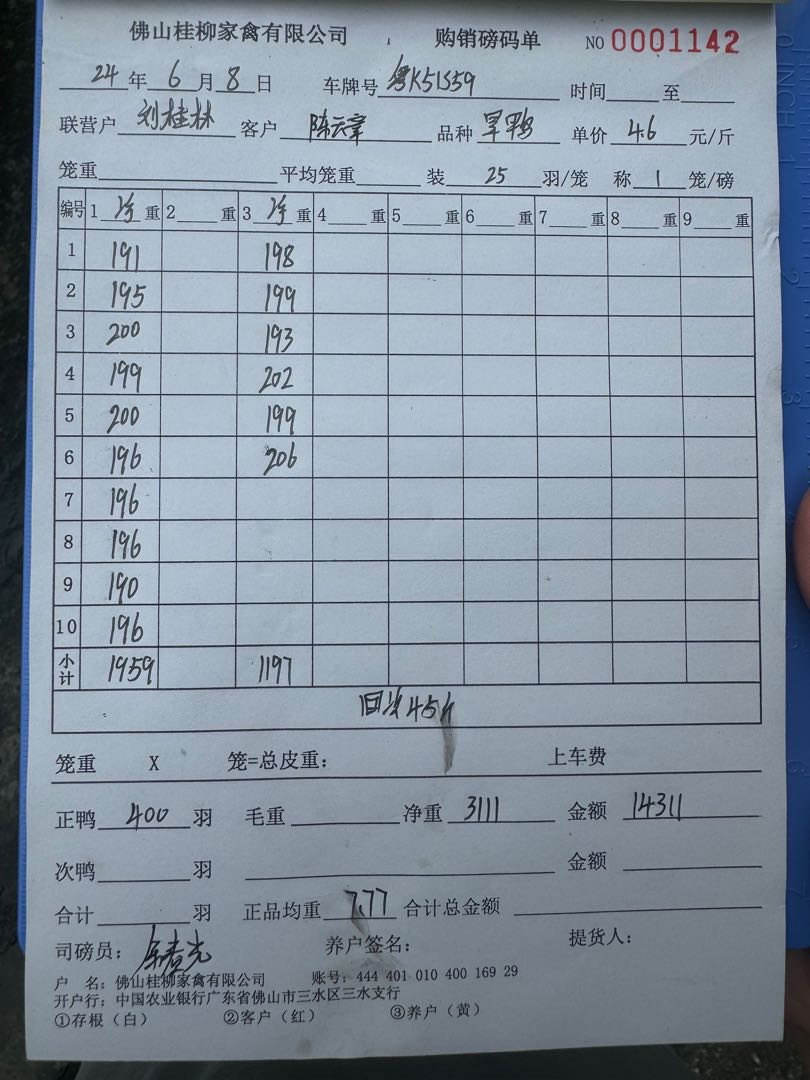 佛山桂柳家禽有限公司 购销磅码单 NO 0001142
24 年 6 月 8 日 车牌号 粤K51S59 时间 至
联营户 刘桂林 客户 陈云章 品种 旱鸭 单价 4.6 元/斤
笼重 平均笼重 装 25 羽/笼 称 1 笼/磅
编号 1 净 重 2 重 3 净 重 4 重 5 重 6 重 7 重 8 重 9 重
1 191 198
2 195 199
3 200 193
4 199 202
5 200 199
6 196 206
7 196
8 196
9 190
10 196
小计 1959 1197
回 45斤
笼重 X 笼=总皮重： 上车费
正鸭 400 羽 毛重 净重 3111 金额 14311
次鸭 羽 金额
合计 羽 正品均重 7.77 合计总金额
司磅员： 养户签名： 提货人：
户 名：佛山桂柳家禽有限公司 账号：444 401 010 400 169 29
开户行：中国农业银行广东省佛山市三水区三水支行
①存根（白） ②客户（红） ③养户（黄）